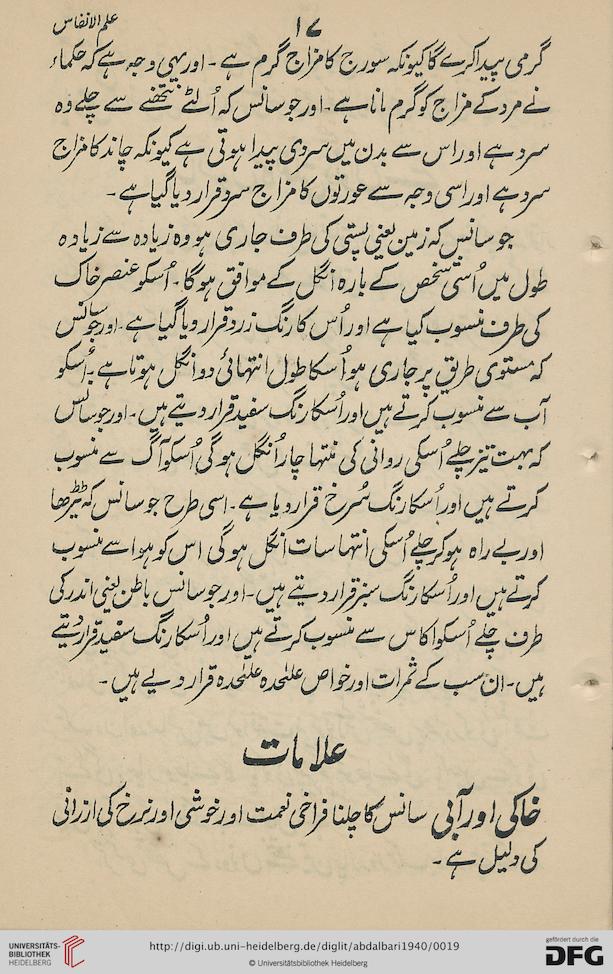 علم الانفاس
۱۷
گرمی پیدا کرے گا کیونکہ سورج کا مزاج گرم ہے۔ اور یہی وجہ ہے کہ حکماء
نے مرد کے مزاج کو گرم مانا ہے۔ اور جو سانس کہ اُلٹے نتھنے سے چلے وہ
سرد ہے اور اس سے بدن میں سردی پیدا ہوتی ہے کیونکہ چاند کا مزاج
سرد ہے اور اسی وجہ سے عورتوں کا مزاج سرد قرار دیا گیا ہے۔
جو سانس کہ زمین یعنی پستی کی طرف جاری ہو وہ زیادہ سے زیادہ
طول میں اُسی شخص کے بارہ انگل کے موافق ہوگا۔ اُسکو عنصر خاک
کی طرف منسوب کیا ہے اور اُس کا رنگ زرد قرار دیا گیا ہے۔ اور جو سانس
کہ مستوی طریق پر جاری ہو اُسکا طول انتہائی دو انگل ہوتا ہے۔ اُسکو
آب سے منسوب کرتے ہیں اور اُسکا رنگ سفید قرار دیتے ہیں۔ اور جو سانس
کہ بہت تیز چلے اُسکی روانی کی منتہا چار اُنگل ہوگی اُسکو آگ سے منسوب
کرتے ہیں اور اُسکا رنگ سُرخ قرار دیا ہے۔ اسی طرح جو سانس کہ ٹیڑھا
اور بے راہ ہو کر چلے اُسکی انتہا سات انگل ہوگی اس کو ہوا سے منسوب
کرتے ہیں اور اُسکا رنگ سبز قرار دیتے ہیں۔ اور جو سانس باطن یعنی اندر کی
طرف چلے اُسکو اکاس سے منسوب کرتے ہیں اور اُسکا رنگ سفید قرار دیتے
ہیں۔ ان سب کے ثمرات اور خواص علٰحدہ علٰحدہ قرار دیے ہیں۔
علامات
خاکی اور آبی سانس کا چلنا فراخی نعمت اور خوشی اور نرخ کی ارزانی
کی دلیل ہے۔
UNIVERSITÄTS-
BIBLIOTHEK
HEIDELBERG
http://digi.ub.uni-heidelberg.de/diglit/abdalbari1940/0019
© Universitätsbibliothek Heidelberg
gefördert durch die
DFG